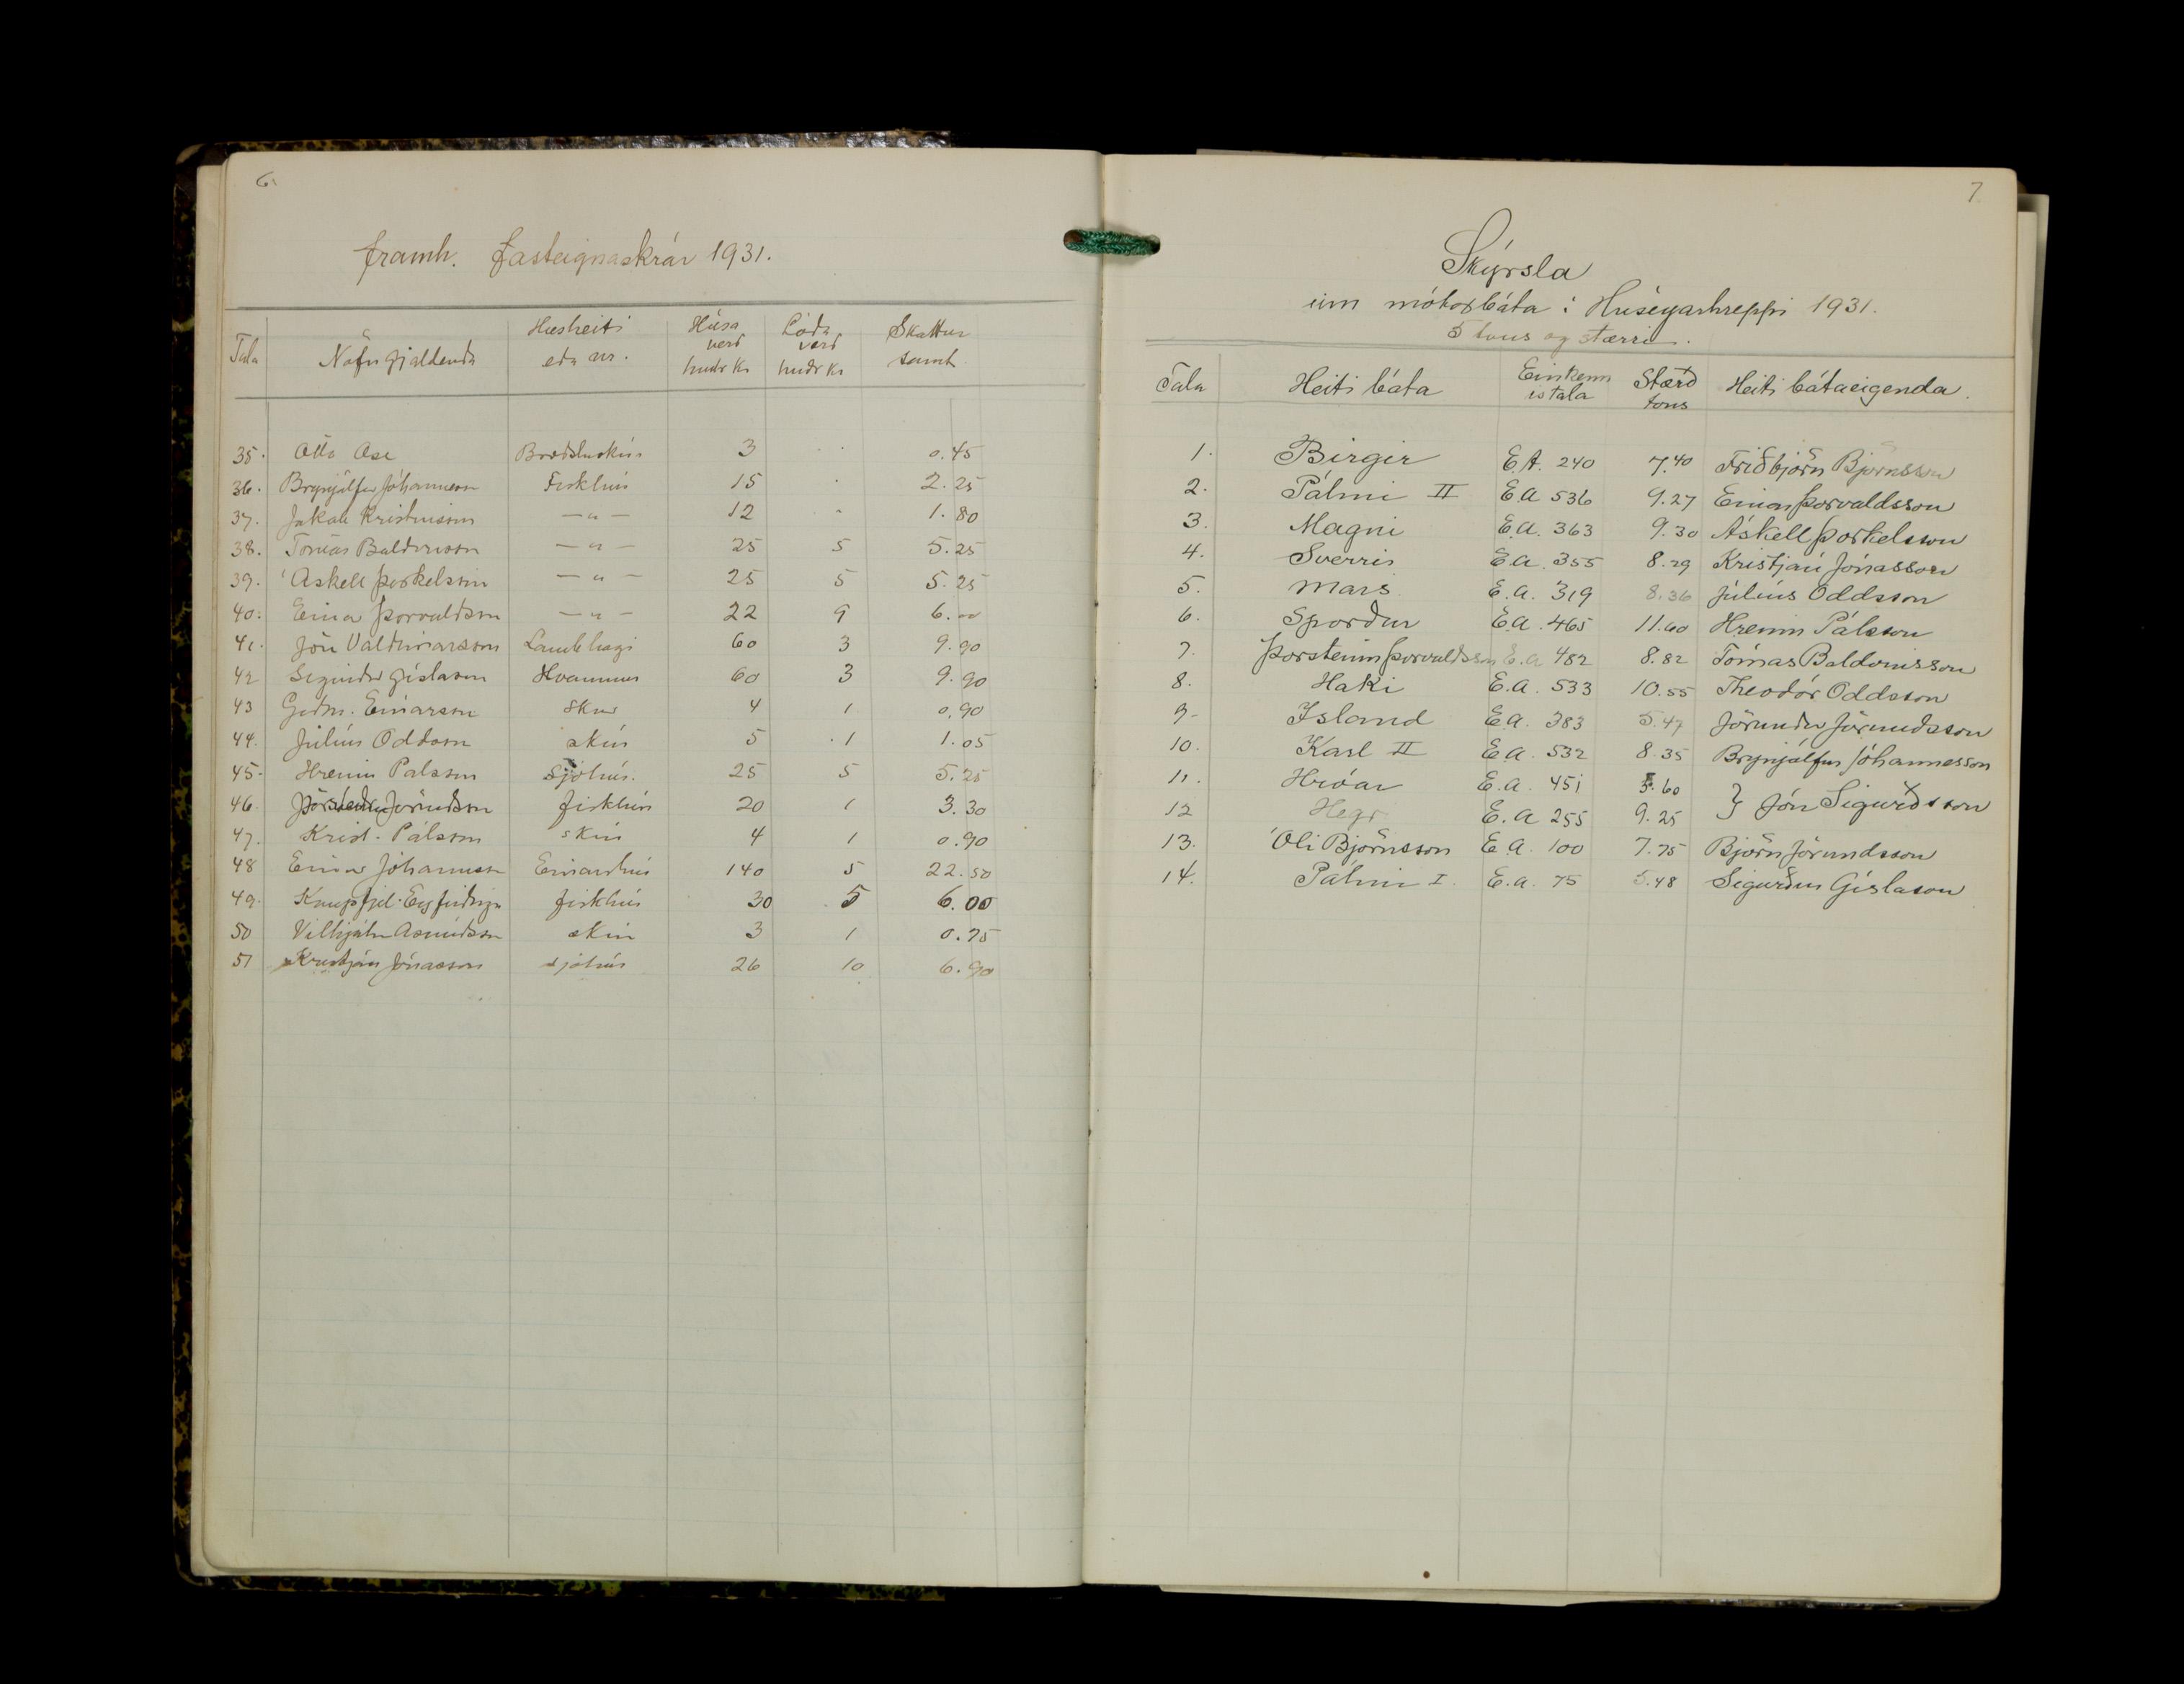 6.
framh. fasteignaskrár 1931.
Tala Nöfn gjaldenda Húsheiti eda nr. Húsa verð hndr kr Lóða verð hndr kr Skattur samt.
35. Otto Ase 3 0.45
36. Brynjólfur Jóhannesson Fiskhús 15 2.25
37. Jakob Kristinsson —"— 12 1.80
38. Tómas Baldvinsson —"— 25 5 5.25
39. Áskell Þorkelsson —"— 25 5 5.25
40. Einar Þorvaldsson —"— 22 9 6.00
41. Jón Valdimarsson Lambhagi 60 3 9.90
42 Sigurður Gíslason Hvammur 60 3 9.90
43 Guðm. Einarsson skúr 4 1 0.90
44. Júlíus Oddsson skúr 5 1 1.05
45. Hreinn Pálsson Sjóhús. 25 5 5.25
46. Jörundsson fiskhús 20 1 3.30
47. Krist. Pálsson skúr 4 1 0.90
48 Einar Jóhannesson Einarshús 140 5 22.50
49. Kaupfjel. Eyfirðinga fiskhús 30 5 6.00
50 Vilhjálm Asmundsson skúr 3 1 0.75
51 Kristján Jónasson sjóhús 26 10 6.90
7.
Skýrsla
um mótorbáta í Hríseyarhreppi 1931.
5 tons og stærri.
Tala Heiti báta Einkennistala Stærð tons Heiti bátaeigenda.
1. Birgir E.A. 240 7.40 Friðbjörn Björnsson
2. Pálmi II E.A 536 9.27 Einar Þorvaldsson
3. Magni E.A. 363 9.30 Áskell Þorkelsson
4. Sverrir E.A. 355 8.29 Kristján Jónasson
5. Mars E.A. 319 8.36 Júlíus Oddsson
6. Sporður E.A. 465 11.60 Hreinn Pálsson
7. Þorsteinn Þorvaldsson E.A 482 8.82 Tómas Baldvinsson
8. Haki E.A. 533 10.55 Theodór Oddsson
9- Island E.A. 383 5.47 Jörundur Jörundsson
10. Karl II E.A. 532 8.35 Brynjólfur Jóhannesson
11. Hróar E.A. 451 5.60 } Jón Sigurðsson
12 Hegri E.A 255 9.25
13. Óli Björnsson E.A. 100 7.75 Björn Jörundsson
14. Pálmi I. E.A. 75 5.48 Sigurður Gíslason